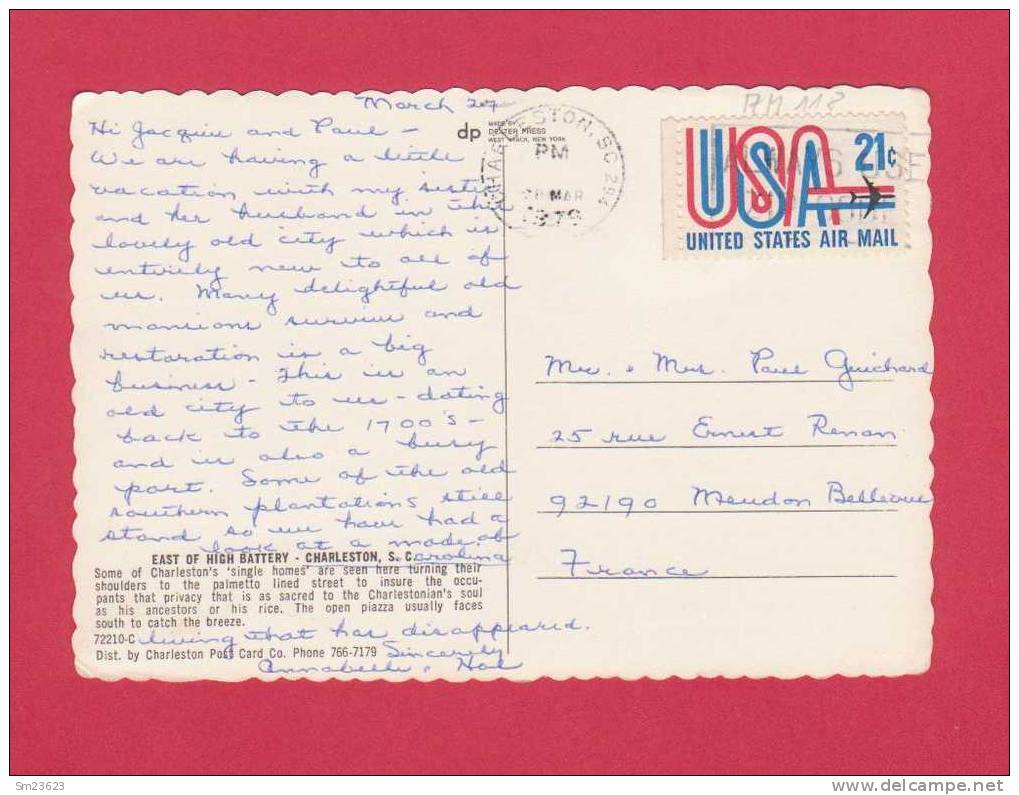 March 27
Hi Jacquie and Paul –
We are having a little
vacation with my sister
and her husband in this
lovely old city which is
entirely new to all of
us. Many delightful old
mansions survive and
restoration is a big
business – This is an
old city to us – dating
back to the 1700's –
and is also a busy
port. Some of the old
southern plantations still
stand so we have had a
look at a mode of
living that has disappeared.
Sincerely
Annabelle & Hal
EAST OF HIGH BATTERY - CHARLESTON, S. Carolina
Some of Charleston's 'single homes' are seen here turning their
shoulders to the palmetto lined street to insure the occu-
pants that privacy that is as sacred to the Charlestonian's soul
as his ancestors or his rice. The open piazza usually faces
south to catch the breeze.
72210-C
Dist. by Charleston Post Card Co. Phone 766-7179
dp
MADE BY
DEXTER PRESS
WEST NYACK, NEW YORK
CHARLESTON, SC 294
PM
28 MAR
1979
AM 118
ALWAYS USE
ZIP CODE
USA 21¢
UNITED STATES AIR MAIL
Mr. & Mrs. Paul Guichard
25 rue Ernest Renan
92190 Meudon Bellevue
France
Sm23623
www.delcampe.net